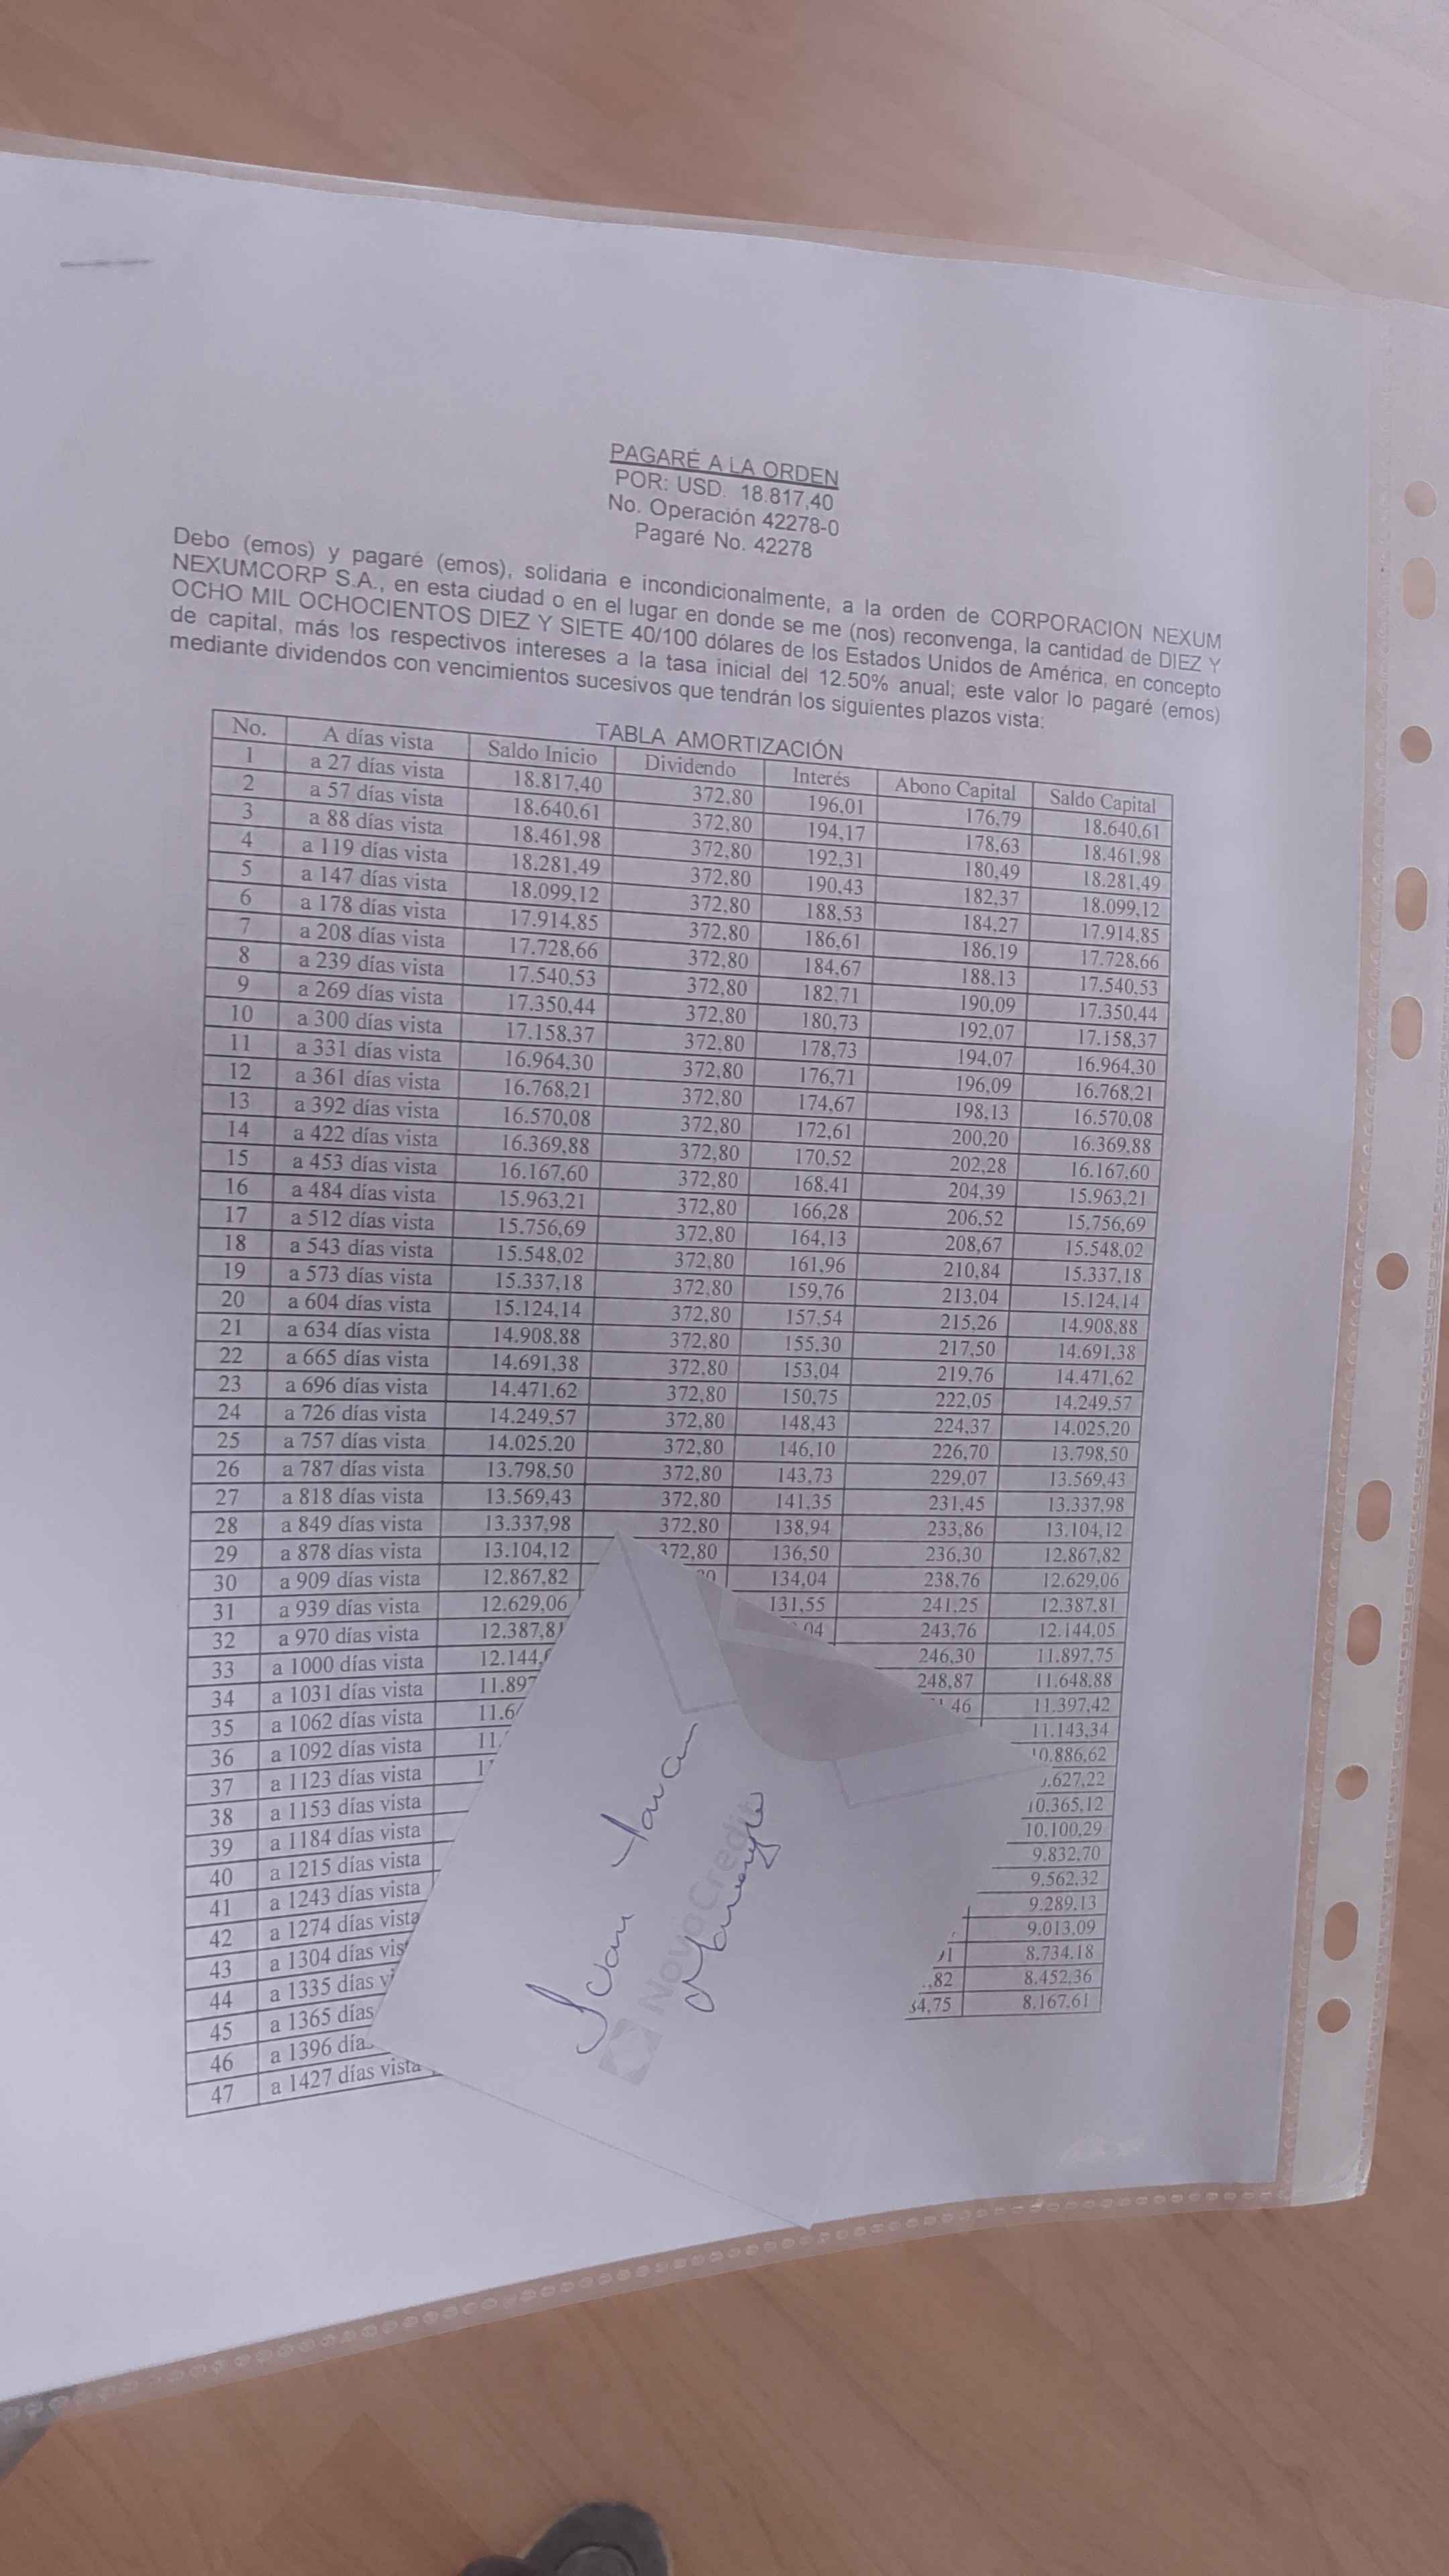 PAGARÉ A LA ORDEN
POR: USD. 18.817,40
No. Operación 42278-0
Pagaré No. 42278
Debo (emos) y pagaré (emos), solidaria e incondicionalmente, a la orden de CORPORACION NEXUM
NEXUMCORP S.A., en esta ciudad o en el lugar en donde se me (nos) reconvenga, la cantidad de DIEZ Y
OCHO MIL OCHOCIENTOS DIEZ Y SIETE 40/100 dólares de los Estados Unidos de América, en concepto
de capital, más los respectivos intereses a la tasa inicial del 12.50% anual; este valor lo pagaré (emos)
mediante dividendos con vencimientos sucesivos que tendrán los siguientes plazos vista:
TABLA AMORTIZACIÓN
No. A días vista Saldo Inicio Dividendo Interés Abono Capital Saldo Capital
1 a 27 días vista 18.817,40 372,80 196,01 176,79 18.640,61
2 a 57 días vista 18.640,61 372,80 194,17 178,63 18.461,98
3 a 88 días vista 18.461,98 372,80 192,31 180,49 18.281,49
4 a 119 días vista 18.281,49 372,80 190,43 182,37 18.099,12
5 a 147 días vista 18.099,12 372,80 188,53 184,27 17.914,85
6 a 178 días vista 17.914,85 372,80 186,61 186,19 17.728,66
7 a 208 días vista 17.728,66 372,80 184,67 188,13 17.540,53
8 a 239 días vista 17.540,53 372,80 182,71 190,09 17.350,44
9 a 269 días vista 17.350,44 372,80 180,73 192,07 17.158,37
10 a 300 días vista 17.158,37 372,80 178,73 194,07 16.964,30
11 a 331 días vista 16.964,30 372,80 176,71 196,09 16.768,21
12 a 361 días vista 16.768,21 372,80 174,67 198,13 16.570,08
13 a 392 días vista 16.570,08 372,80 172,61 200,20 16.369,88
14 a 422 días vista 16.369,88 372,80 170,52 202,28 16.167,60
15 a 453 días vista 16.167,60 372,80 168,41 204,39 15.963,21
16 a 484 días vista 15.963,21 372,80 166,28 206,52 15.756,69
17 a 512 días vista 15.756,69 372,80 164,13 208,67 15.548,02
18 a 543 días vista 15.548,02 372,80 161,96 210,84 15.337,18
19 a 573 días vista 15.337,18 372,80 159,76 213,04 15.124,14
20 a 604 días vista 15.124,14 372,80 157,54 215,26 14.908,88
21 a 634 días vista 14.908,88 372,80 155,30 217,50 14.691,38
22 a 665 días vista 14.691,38 372,80 153,04 219,76 14.471,62
23 a 696 días vista 14.471,62 372,80 150,75 222,05 14.249,57
24 a 726 días vista 14.249,57 372,80 148,43 224,37 14.025,20
25 a 757 días vista 14.025,20 372,80 146,10 226,70 13.798,50
26 a 787 días vista 13.798,50 372,80 143,73 229,07 13.569,43
27 a 818 días vista 13.569,43 372,80 141,35 231,45 13.337,98
28 a 849 días vista 13.337,98 372,80 138,94 233,86 13.104,12
29 a 878 días vista 13.104,12 372,80 136,50 236,30 12.867,82
30 a 909 días vista 12.867,82 134,04 238,76 12.629,06
31 a 939 días vista 12.629,06 131,55 241,25 12.387,81
32 a 970 días vista 12.387,81 243,76 12.144,05
33 a 1000 días vista 246,30 11.897,75
34 a 1031 días vista 248,87 11.648,88
35 a 1062 días vista 11.397,42
36 a 1092 días vista 11.143,34
37 a 1123 días vista
38 a 1153 días vista
39 a 1184 días vista 10.365,12
40 a 1215 días vista 10.100,29
41 a 1243 días vista 9.832,70
42 a 1274 días vista 9.562,32
43 a 1304 días 9.289,13
44 a 1335 días 9.013,09
45 a 1365 días 8.734,18
46 a 1396 8.452,36
47 a 1427 días vista 8.167,61
NovoCredit